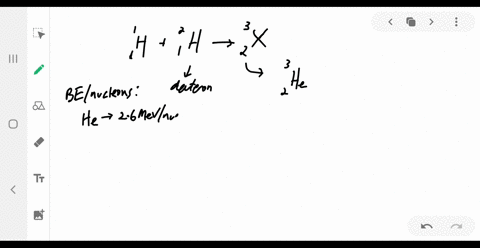 ¹₁H + ²₁H → ³₂X
↓ ↳ ³₂He
deuteron
BE/nucleons:
He → 2.6 MeV/nu